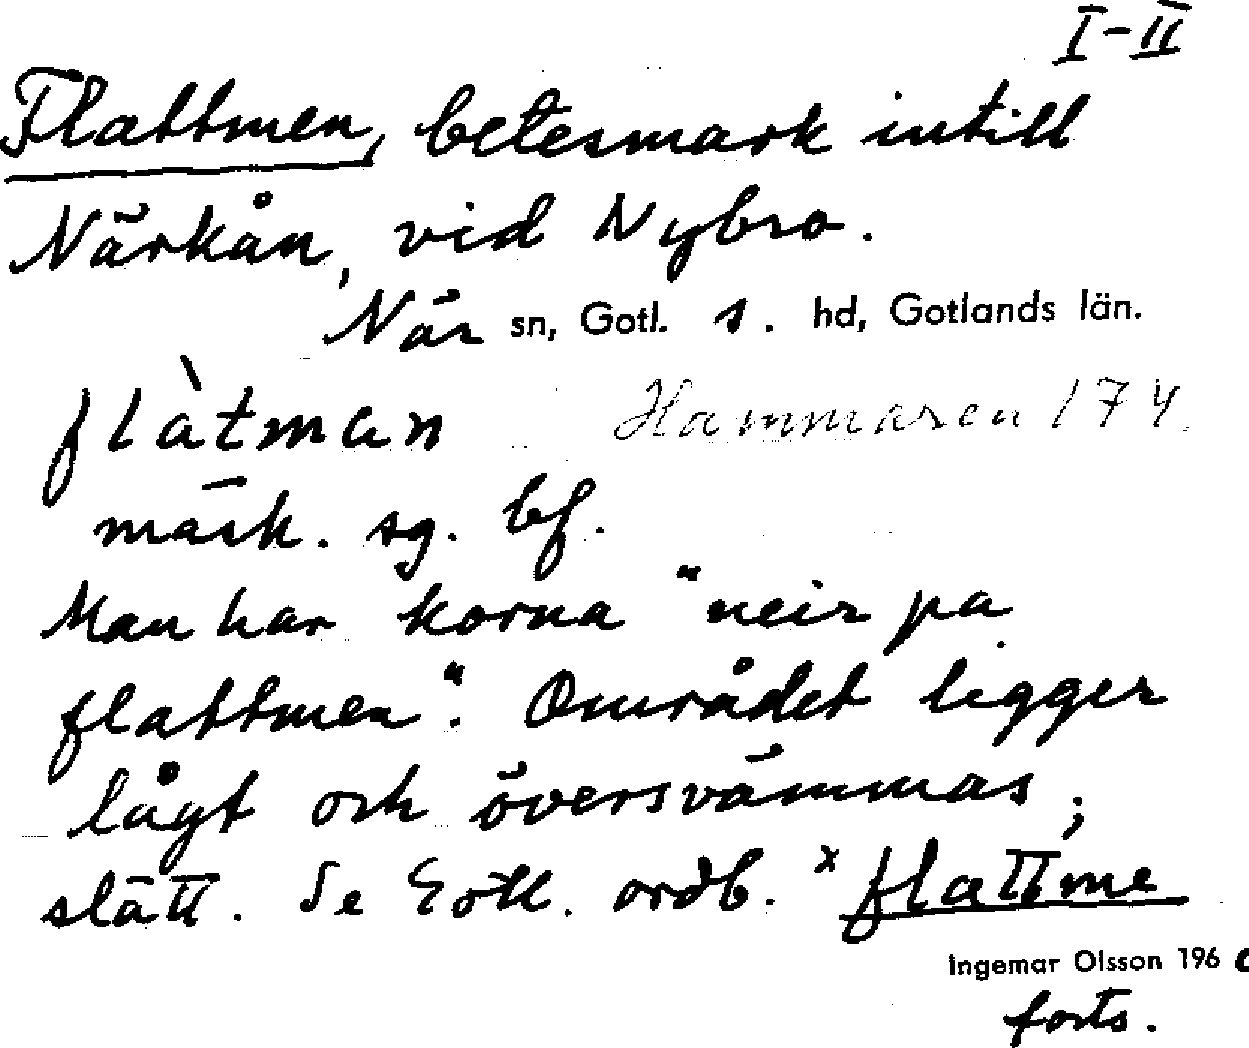 I-II
Flattmen, betesmark intill
Närkån, vid Nybro.
När sn, Gotl. s. hd, Gotlands län.
flàtman Hammaren 174
mask. sg. bf.
Man har korna "neir pa
flattmen". Området ligger
lågt och översvämmas;
slätt. Se Gotl. ordb. x flattme
Ingemar Olsson 196
forts.